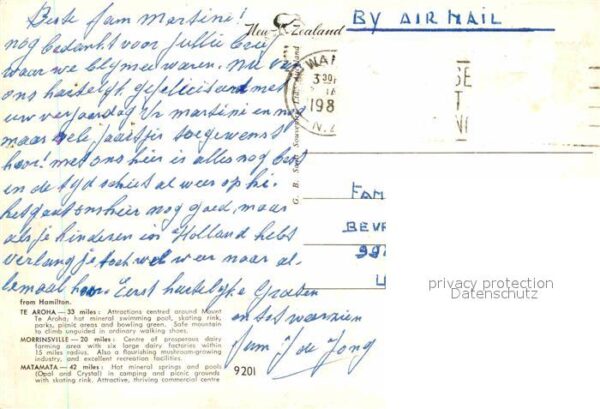 Beste fam Martini!
nog bedankt voor jullie brief
waar we bly mee waren. Nu van
ons hartelyk gefeliciteerd met
uw verjaardag Vr martini en nog
maar vele jaartjes toegewenst
hoor! met ons hier is alles nog best
en de tyd schiet al weer op hé.
het gaat ons hier nog goed, maar
als je kinderen in Holland hebt
verlang je toch wel weer naar al-
lemaal hoor. Eerst hartelyke Groeten
en tot weerziens
fam J de Jong
New Zealand
BY AIR MAIL
WAI
3 30
198
N.Z
SE
T
FAM
BEVR
99
privacy protection
Datenschutz
G. B. Scott Souvenirs Ltd.
from Hamilton.
TE AROHA — 33 miles: Attractions centred around Mount
Te Aroha, hot mineral swimming pool, skating rink,
parks, picnic areas and bowling green. Safe mountain
to climb unguided in ordinary walking shoes.
MORRINSVILLE — 20 miles: Centre of prosperous dairy
farming area with six large dairy factories within
15 miles radius. Also a flourishing mushroom-growing
industry, and excellent recreation facilities.
MATAMATA — 42 miles: Hot mineral springs and pools
(Opal and Crystal) in camping and picnic grounds
with skating rink. Attractive, thriving commercial centre
9201